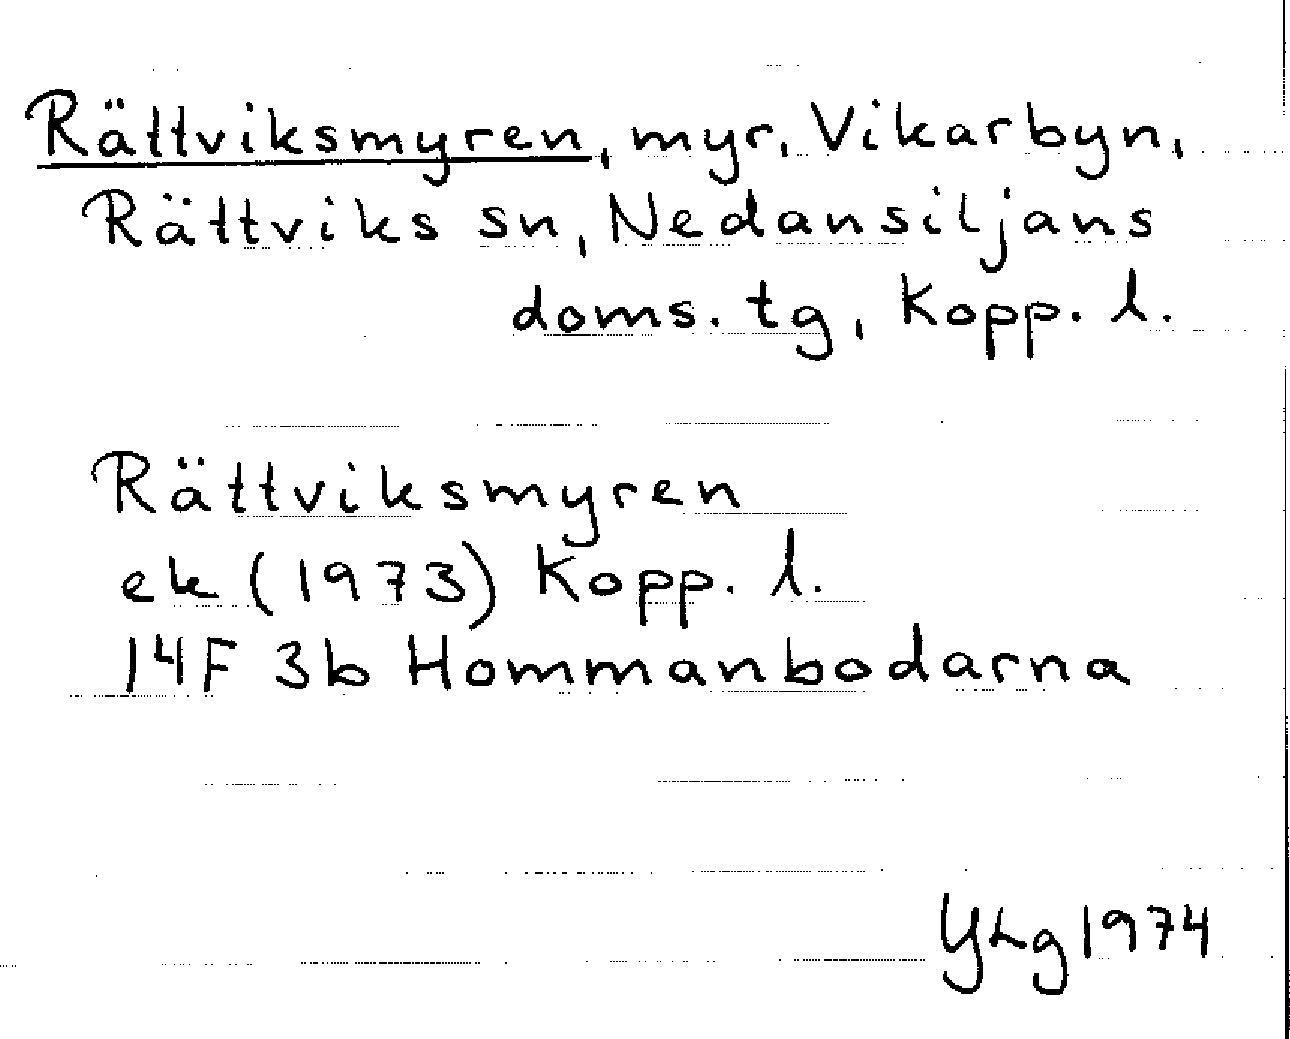 Rättviksmyren, myr, Vikarbyn,
Rättviks sn, Nedansiljans
doms. tg, Kopp. l.
Rättviksmyren
ek (1973) Kopp. l.
14F 3b Hommanbodarna
YLg 1974